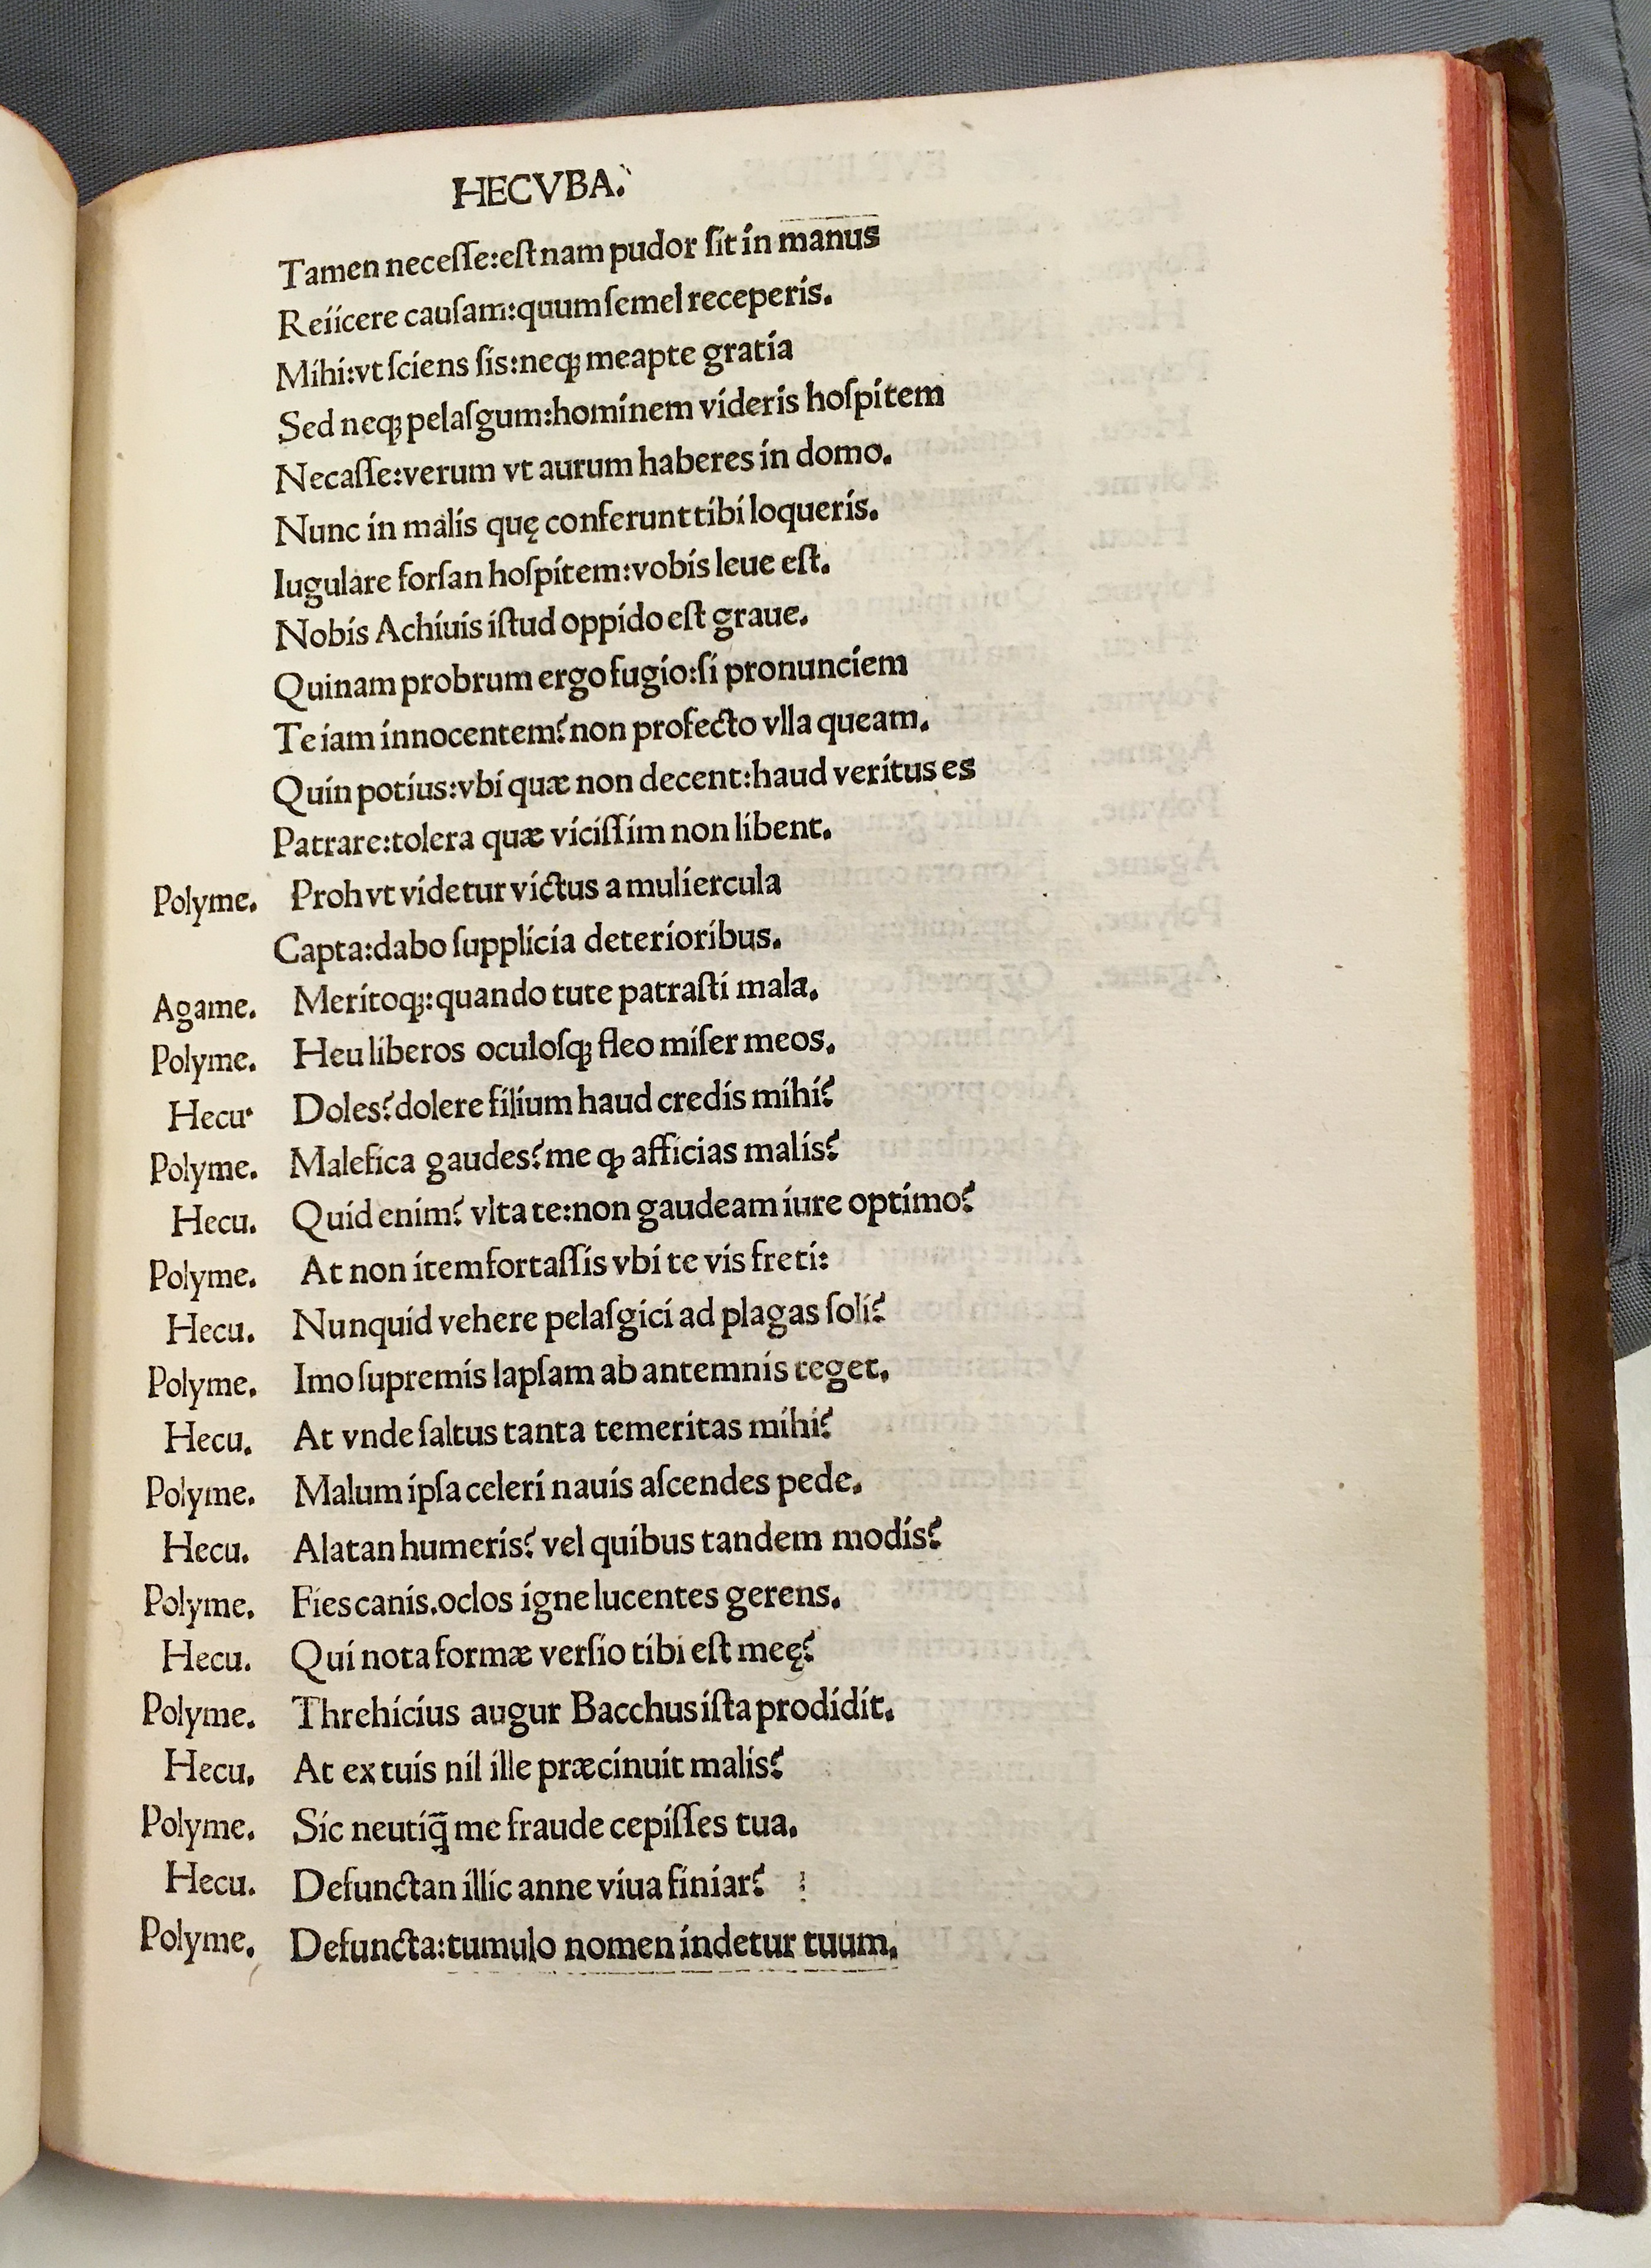 HECVBA.
Tamen neceſſe:eſt nam pudor ſit in manus
Reiicere cauſam:quum ſemel receperis.
Mihi:vt ſciens ſis:neqꝫ meapte gratia
Sed neqꝫ pelaſgum:hominem videris hoſpitem
Necaſſe:verum vt aurum haberes in domo.
Nunc in malis quę conferunt tibi loqueris.
Iugulare forſan hoſpitem:vobis leue eſt.
Nobis Achiuis iſtud oppido eſt graue.
Quinam probrum ergo fugio:ſi pronunciem
Te iam innocentem? non profecto vlla queam.
Quin potius:vbi quæ non decent:haud veritus es
Patrare:tolera quæ viciſſim non libent.
Polyme. Proh vt videtur victus a muliercula
Capta:dabo ſupplicia deterioribus.
Agame. Meritoqꝫ:quando tute patraſti mala.
Polyme. Heu liberos oculoſqꝫ fleo miſer meos.
Hecu. Doles? dolere filium haud credis mihi?
Polyme. Malefica gaudes? me ꝙ afficias malis?
Hecu. Quid enim? vlta te:non gaudeam iure optimo?
Polyme. At non item fortaſſis vbi te vis freti:
Hecu. Nunquid vehere pelaſgici ad plagas ſoli?
Polyme. Imo ſupremis lapſam ab antemnis teget.
Hecu. At vnde ſaltus tanta temeritas mihi?
Polyme. Malum ipſa celeri nauis aſcendes pede.
Hecu. Alatan humeris? vel quibus tandem modis?
Polyme. Fies canis.oclos igne lucentes gerens.
Hecu. Qui nota formæ verſio tibi eſt meę?
Polyme. Threhicius augur Bacchus iſta prodidit.
Hecu. At ex tuis nil ille præcinuit malis?
Polyme. Sic neutiq̄ me fraude cepiſſes tua.
Hecu. Defunctan illic anne viua finiar?
Polyme. Defuncta:tumulo nomen indetur tuum.